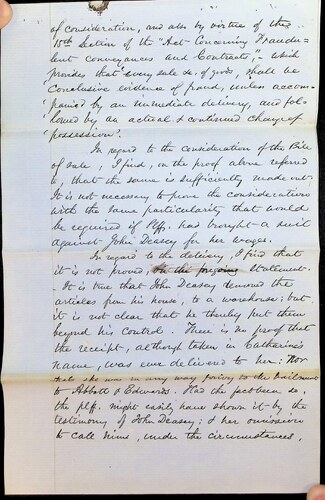 of consideration, and also by virtue of the
15th Section of the "Act Concerning Fraudu-
lent conveyances and Contracts", which
provides that every sale &c. of goods, shall be
Conclusive evidence of fraud, unless accom-
panied by an immediate delivery, and fol-
lowed by an actual & continued change of
possession".
In regard to the consideration of the Bill
of sale, I find, on the proof above referred
to, that the same is sufficiently made out.
It is not necessary to prove the consideration
with the same particularity that would
be required if Plff. has brought a suit
against John Deasey for her wages.
In regard to the delivery, I find that
it is not proved in the foregoing Statement.
It is true that John Deasey removed the
articles from his house, to a warehouse; but
it is not clear that he thereby put them
beyond his control. There is no proof that
the receipt, although taken in Catharine's
name, was ever delivered to her: Nor
that she was in any way privy to the bailment
to Abbott & Edwards. Had the fact been so,
the plff. might easily have shown it by the
testimony of John Deasey; & her omission
to call him, under the circumstances,